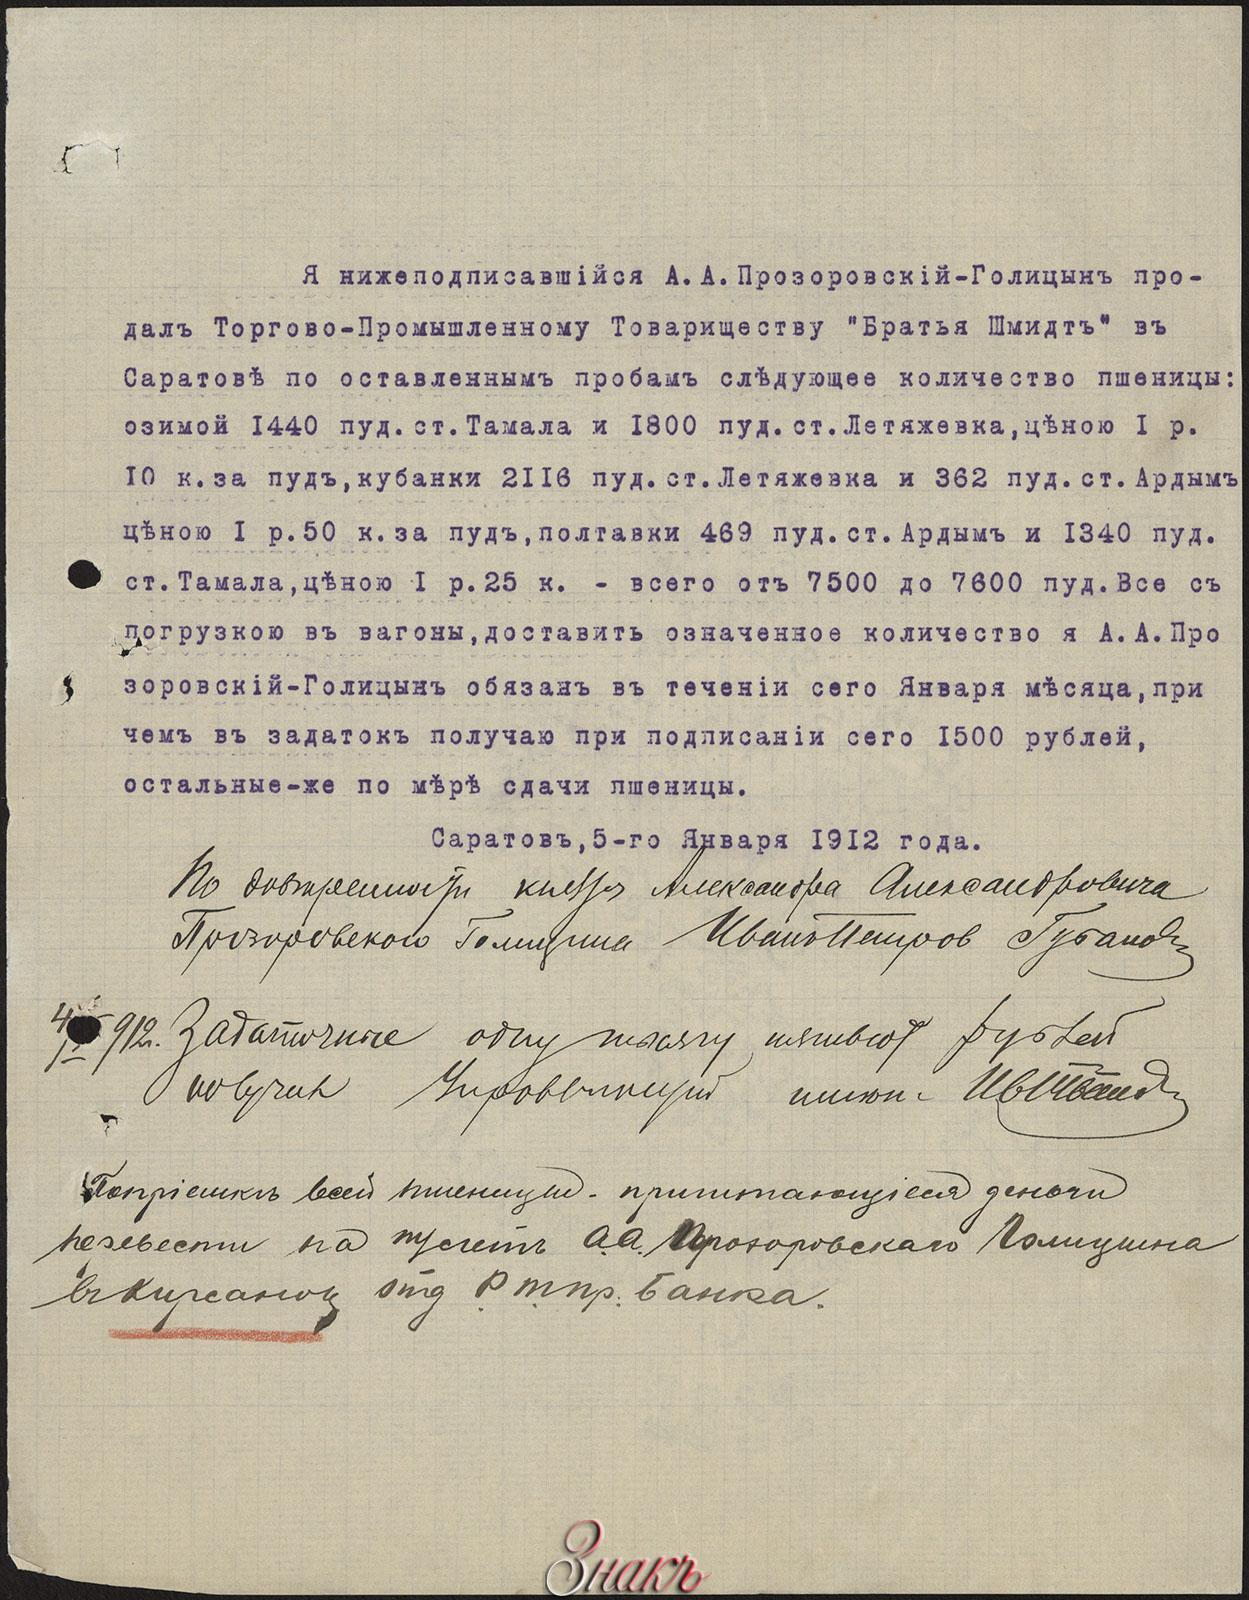 Я нижеподписавшійся А.А.Прозоровскій-Голицынъ про-
далъ Торгово-Промышленному Товариществу "Братья Шмидтъ" въ
Саратовѣ по оставленнымъ пробамъ слѣдующее количество пшеницы:
озимой I440 пуд.ст.Тамала и I800 пуд.ст.Летяжевка,цѣною I р.
I0 к.за пудъ,кубанки 2II6 пуд.ст.Летяжевка и 362 пуд.ст.Ардымъ
цѣною I р.50 к.за пудъ,полтавки 469 пуд.ст.Ардымъ и I340 пуд.
ст.Тамала,цѣною I р.25 к. - всего отъ 7500 до 7600 пуд.Все съ
погрузкою въ вагоны,доставить означенное количество я А.А.Про
зоровскій-Голицынъ обязанъ въ теченіи сего Января мѣсяца,при
чемъ въ задатокъ получаю при подписаніи сего I500 рублей,
остальные-же по мѣрѣ сдачи пшеницы.
Саратовъ,5-го Января I9I2 года.
По довѣренности князя Александра Александровича
Прозоровскаго Голицына Иванъ Петров Губановъ
912. Задаточные одну тысячу пятьсот рублей
получил Управляющій имѣн.
По пріемкѣ всей пшеницы - причитающіеся деньги
перевести на счетъ А.А. Прозоровскаго Голицына
въ Кирсанов отд Р. Т. пр. Банка.
Знакъ